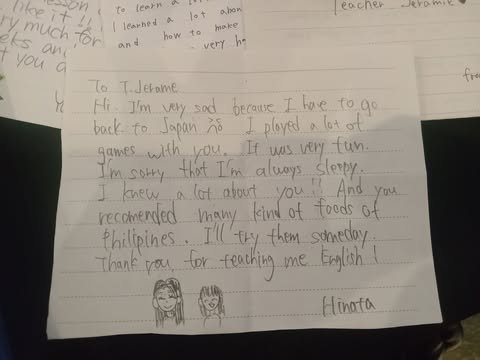 lesson
like it!!
very much for
to learn a
I learned a lot about
and how to make
very
Teacher Jeramie
To T. Jerame
Hi. I'm very sad because I have to go
back to Japan I played a lot of
games with you. It was very fun.
I'm sorry that I'm always sleepy.
I knew a lot about you!! And you
recomended many kind of foods of
Philipines. I'll try them someday.
Thank you for teaching me English!
Hinata